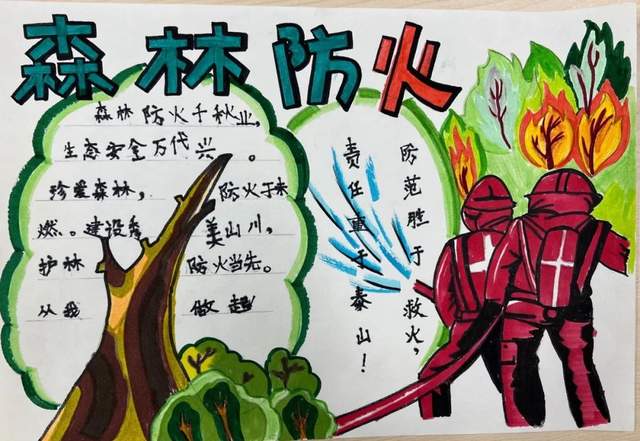 森林防火
森林防火千秋业,
生态安全万代兴。
珍爱森林, 防火于未
燃。建设秀美山川,
护林防火当先。
从我做起
防范胜于救火,
责任重于泰山!